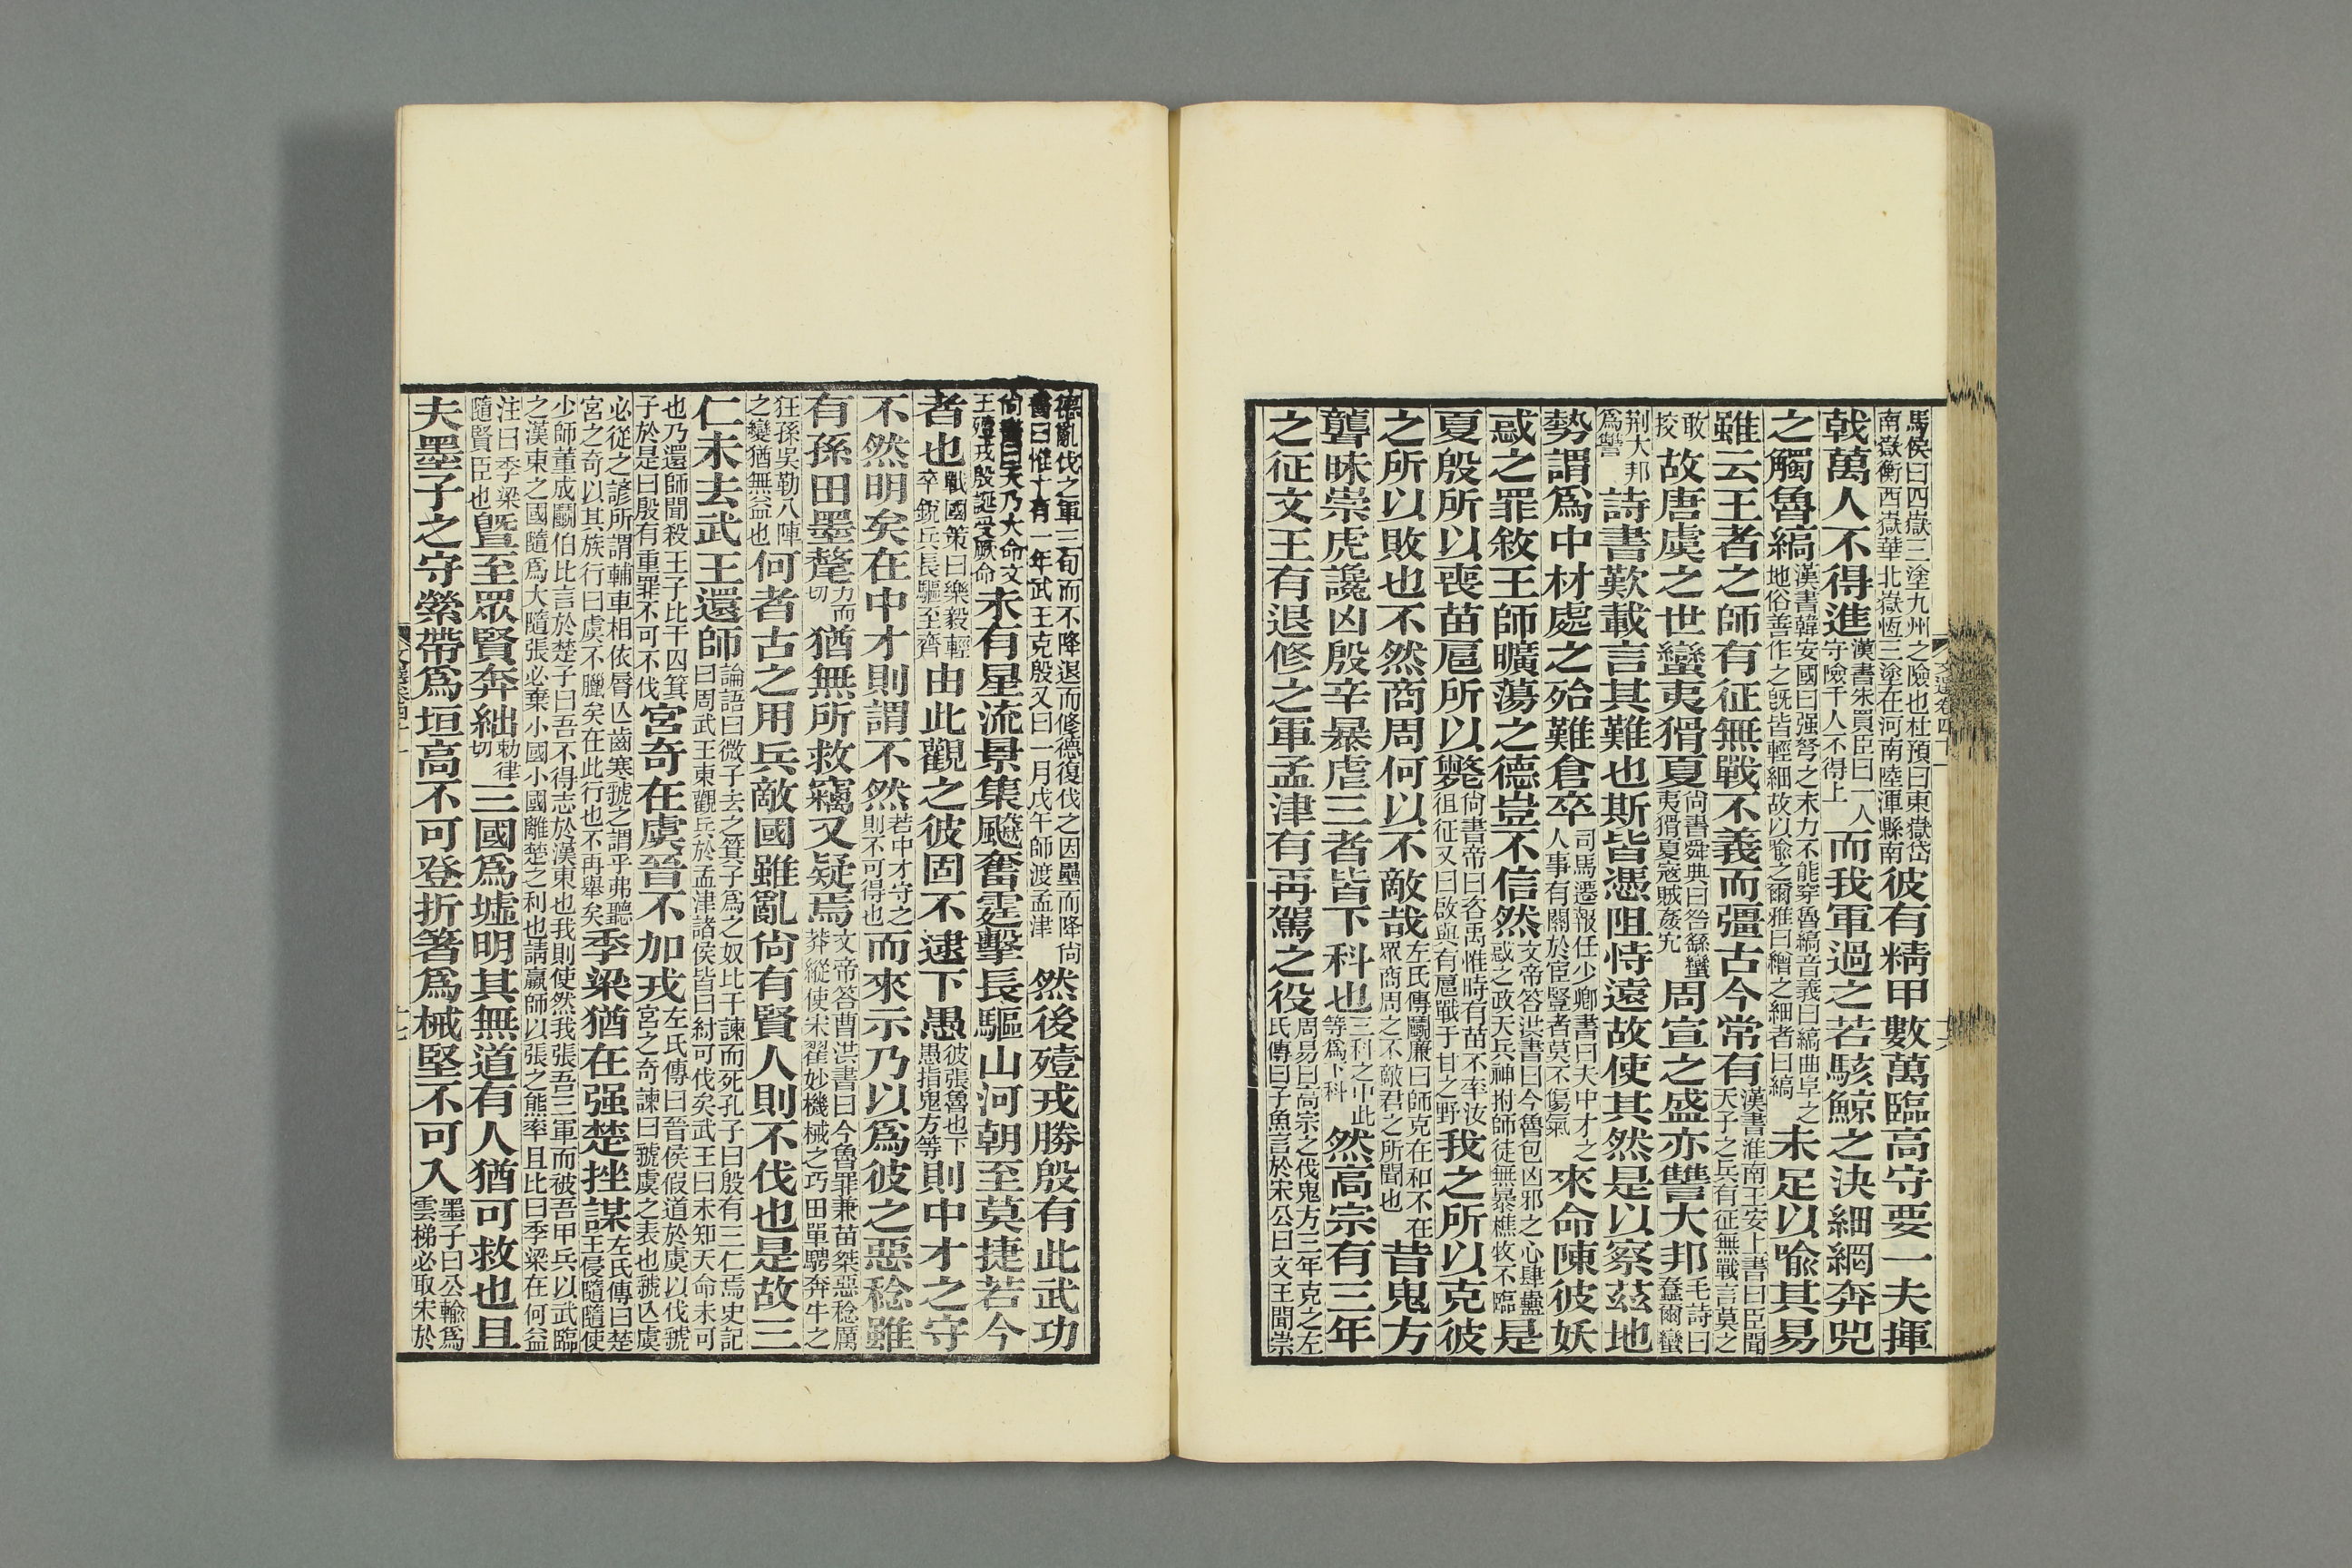 馬侯曰四嶽三塗九州之險也杜預曰東嶽岱南嶽衡西嶽華北嶽恆三塗在河南陸渾縣南彼有精甲數萬臨高守要一夫揮
戟萬人不得進漢書朱買臣曰一人守險千人不得上而我軍過之若駭鯨之決細網奔兕
之觸魯縞漢書韓安國曰强弩之末力不能穿魯縞音義曰縞曲阜之地俗善作之旣皆輕細故以喻之爾雅曰繒之細者曰縞未足以喻其易
雖云王者之師有征無戰不義而彊古今常有漢書淮南王安上書曰臣聞天子之兵有征無戰言莫之
敢挍故唐虞之世蠻夷猾夏尙書舜典曰咎繇蠻夷猾夏寇賊姦宄周宣之盛亦讐大邦毛詩曰蠢爾蠻
荆大邦爲讐詩書歎載言其難也斯皆憑阻恃遠故使其然是以察茲地
勢謂爲中材處之殆難倉卒司馬遷報任少卿書曰夫中才之人事有關於宦豎者莫不傷氣來命陳彼妖
惑之罪敘王師曠蕩之德豈不信然文帝答洪書曰今魯包凶邪之心肆蠱惑之政天兵神拊師徒無暴樵牧不臨是
夏殷所以喪苗扈所以斃尙書帝曰咨禹惟時有苗不率汝徂征又曰啟與有扈戰于甘之野我之所以克彼
之所以敗也不然商周何以不敵哉左氏傳鬭廉曰師克在和不在眾商周之不敵君之所聞也昔鬼方
聾昧崇虎讒凶殷辛暴虐三者皆下科也三科之中此等爲下科然高宗有三年
之征文王有退修之軍孟津有再駕之役周易曰高宗之伐鬼方三年克之左氏傳曰子魚言於宋公曰文王聞崇
德亂伐之軍三旬而不降退而修德復伐之因壘而降尙書曰惟十有一年武王克殷又曰一月戊午師渡孟津然後殪戎勝殷有此武功
尙書曰天乃大命文王殪戎殷誕受厥命未有星流景集飇奮霆擊長驅山河朝至莫捷若今
者也戰國策曰樂毅輕卒銳兵長驅至齊由此觀之彼固不逮下愚彼張魯也下愚指鬼方等則中才之守
不然明矣在中才則謂不然若中才守之則不可得也而來示乃以爲彼之惡稔雖
有孫田墨氂力而切猶無所救竊又疑焉文帝答曹洪書曰今魯罪兼苗桀惡稔厲莽縱使宋翟妙機械之巧田單騁奔牛之
狂孫吳勒八陣之變猶無益也何者古之用兵敵國雖亂尙有賢人則不伐也是故三
仁未去武王還師論語曰微子去之箕子爲之奴比干諫而死孔子曰殷有三仁焉史記曰周武王東觀兵於孟津諸侯皆曰紂可伐矣武王曰未知天命未可
也乃還師聞殺王子比干囚箕子於是曰殷有重罪不可不伐宮奇在虞晉不加戎左氏傳曰晉侯假道於虞以伐虢宮之奇諫曰虢虞之表也虢亾虞
必從之諺所謂輔車相依脣亾齒寒虢之謂乎弗聽宮之奇以其族行曰虞不臘矣在此行也不再舉矣季梁猶在强楚挫謀左氏傳曰楚王侵隨隨使
少師董成鬭伯比言於楚子曰吾不得志於漢東也我則使然我張吾三軍而被吾甲兵以武臨之漢東之國隨爲大隨張必棄小國小國離楚之利也請羸師以張之熊率且比曰季梁在何益
注曰季梁隨賢臣也曁至眾賢奔絀勅律切三國爲墟明其無道有人猶可救也且
夫墨子之守縈帶爲垣高不可登折箸爲械堅不可入墨子曰公輸爲雲梯必取宋於